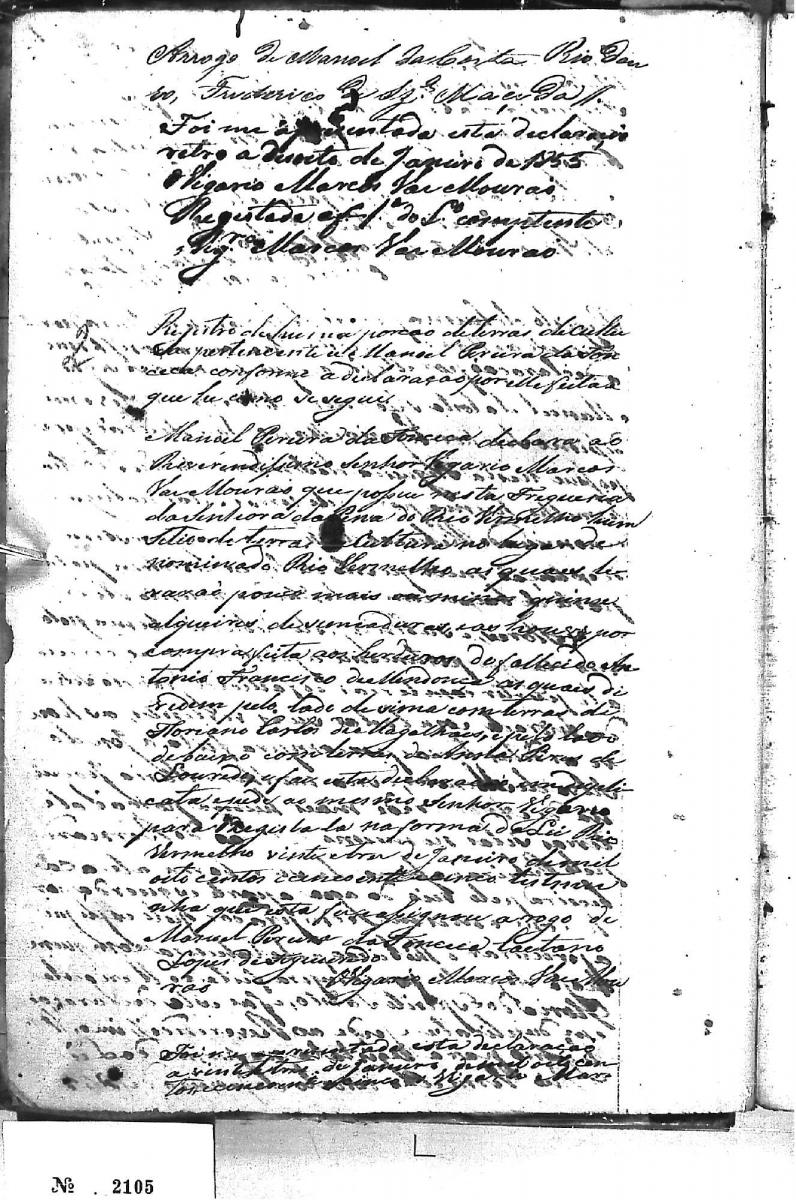 Arrogo de Manoel da Costa Rio Dou
ro, Frederico de Sz.ª Macedo //.
Foi me apresentada esta declaração
retro a dusoito de Janeiro de 1855
O Vigario Marcos Vas Mourão
Registada a f 1ª do Lº competente
Vigrº Marcos Vas Mourão
2
Registro de huma porção de terras de cultu
ra pertencente a Manoel Pereira da Fon
ceca, conforme a declaração por elle feita a
que he como se segue.
Manoel Pereira da Fonceca declara ao
Reverendissimo Senhor Vigario Marcos
Vas Mourão que possue nesta Freguesia
da Senhora da Pena do Rio Vermelho hum
Sitio de terras de Cultura no lugar de
nominado Rio Vermelho as quaes le
varão pouco mais ou menos quinse
alqueires de semeaduras, e as houve por
compra feita aos herdeiros do fallecido An
tonio Francisco de Mendonca, as quais di
videm pelo lado de sima com terras de
Floriano Carlos de Magalhães, e pelo lado
de baixo com terras de Anna
Louredo, e faz esta declaração em dupli
cata, e pede ao mesmo Senhor Vigario
para Registala na forma da Lei Rio
Vermelho vinte e tres de Janeiro de mil
oito centos e cincoenta e cinco testemu
nha que esta fez e asignou a rogo de
Manoel Pereira da Fonceca Caetano
Lopes de Figueiredo O Vigario Marcos Vas Mou
rão
Foi me apresentada esta declaração
a vinte e tres de Janeiro de mil oito cen
tos e cincoenta e cinco O Vigario Mar-
Nº. 2105